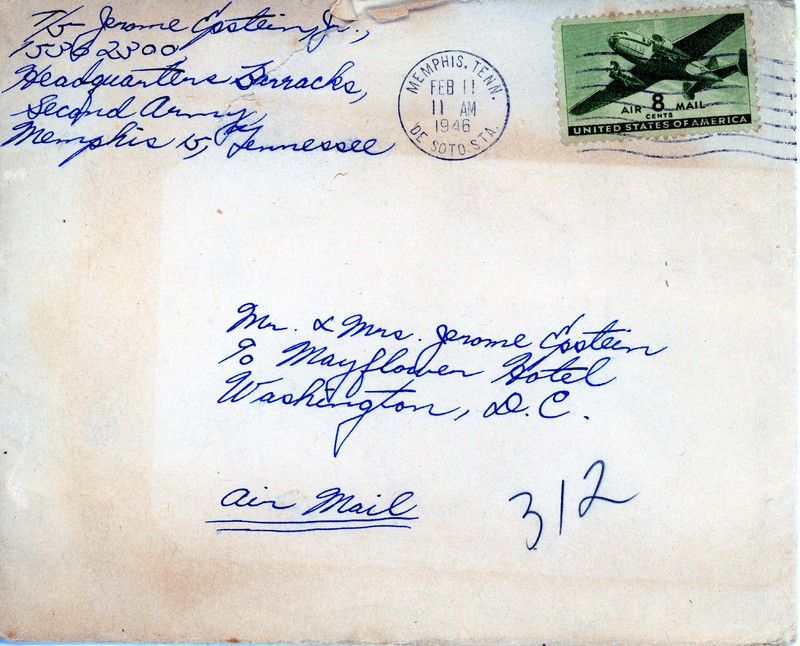 T/5 Jerome Epstein, Jr.,
Headquarters Barracks,
Second Army,
Memphis 15, Tennessee
MEMPHIS, TENN.
FEB 11
11 AM
1946
DE SOTO STA.
AIR 8 MAIL
CENTS
UNITED STATES OF AMERICA
Mr. & Mrs. Jerome Epstein
℅ Mayflower Hotel
Washington, D.C.
Air Mail
312